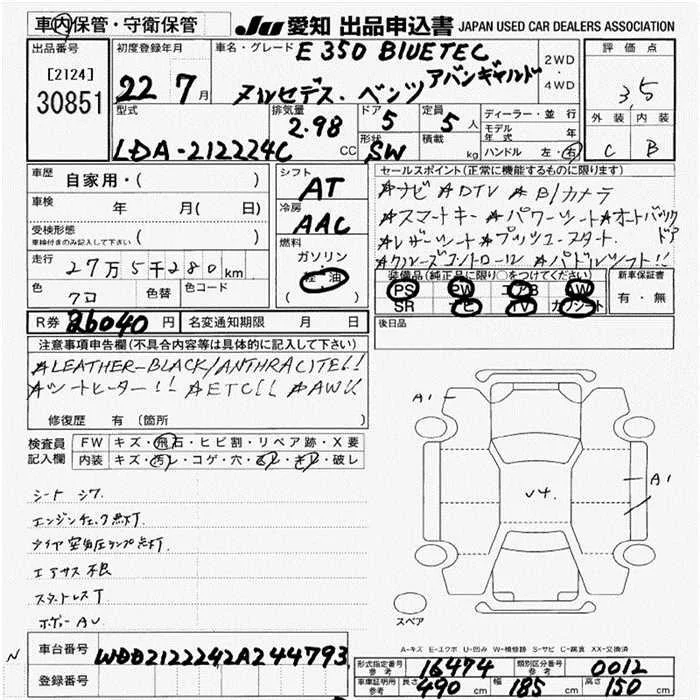 車内保管・守衛保管
JU 愛知 出品申込書 JAPAN USED CAR DEALERS ASSOCIATION
出品番号
[2124]
30851
初度登録年月
22 7月
車名・グレード E 350 BLUETEC
メルセデス・ベンツ アバンギャルド
2WD・4WD
評価点
3,5
外装 内装
C B
型式
LDA-212224C
排気量
2.98 CC
ドア 5
形状 SW
定員 5人
積載 kg
ディーラー・並行
モデル年式 年
ハンドル 左・右
車歴 自家用・( )
車検 年 月( 日)
受検形態
車検付きのみ記入して下さい ( )
走行 27万5千280km
色 クロ 色替 色コード
シフト AT
冷房 AAC
燃料 ガソリン
軽油
( )
セールスポイント(正常に機能するものに限ります)
☆ナビ ☆DTV ☆B/カメラ
☆スマートキー ☆パワーシート☆オートバックドア
☆レザーシート☆プッシュスタート
☆クルーズコントロール ☆パドルシフト!!
装備品(純正品に限り○をつけてください)
PS PW エアB AW
SR ナビ TV カワシート
新車保証書
有・無
R券 26040 円 名変通知期限 月 日
後日品
注意事項申告欄(不具合内容等は具体的に記入して下さい)
☆LEATHER-BLACK/ANTHRACITE!!
☆シートヒーター!! ☆ETC!! ☆AW!!
修復歴 有 (箇所 )
検査員記入欄
FW キズ・飛石・ヒビ割・リペア跡・X要
内装 キズ・汚レ・コゲ・穴・・キレ・破レ
シート シワ
エンジンチェック点灯
タイヤ空気圧ランプ点灯
エアサス不良
スタットレスT
ボデー AU
A1
A1
V4.
スペア
A-キズ E-エクボ U-凹み W-補修跡 S-サビ C-腐食 XX-交換済
N
車台番号 WDD2122242A244793
登録番号
形式指定番号 参考 16474 類別区分番号 参考 0012
車庫証明用 参考 長さ 490 cm 幅 185 cm 高さ 150 cm